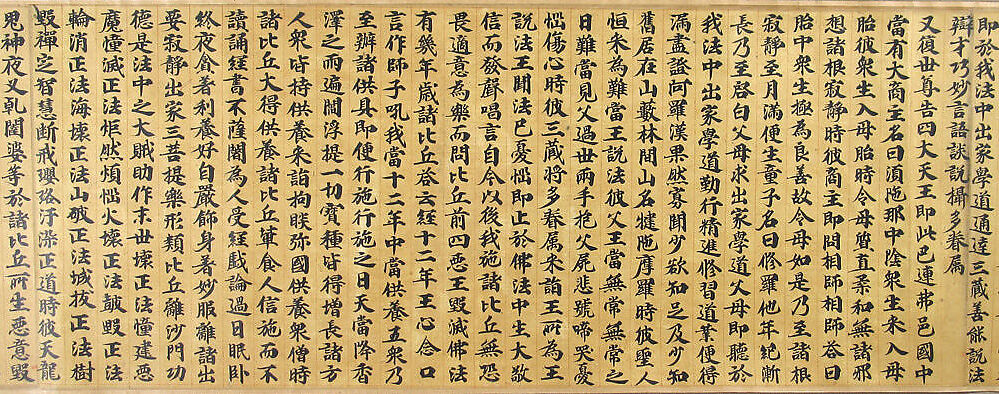 即於我法中出家學道通達三藏善能說法
辯才巧妙言語談說攝多眷屬
又復世尊告四大天王即此巴連弗邑國中
當有大商主名曰須陁那中陰衆生来入母
胎彼衆生入母胎時令母質直柔和無諸邪
想諸根寂靜時彼商主即問相師相師荅曰
胎中衆生極為良善故令母如是乃至諸根
寂靜至月滿便生童子名曰修羅他年紀漸
長乃至啓白父母求出家學道父母即聽於
我法中出家學道勤行精進修習道業便得
漏盡證阿羅漢果然寡聞少欲知足及少知
舊居在山藪林間山名揵陁摩羅時彼聖人
恒来為難當王說法彼父王當無常無常之
日難當見父過世兩手抱父屍悲號啼哭憂
惱傷心時彼三藏將多眷屬来詣王所為王
說法王聞法已憂惱即止於佛法中生大敬
信而發聲唱言自今以後我施諸比丘無恐
畏適意為樂而問比丘前四惡王毀滅佛法
有幾年歲諸比丘荅云經十二年王心念口
言作師子吼我當十二年中當供養五衆乃
至辦諸供具即便行施行施之日天當降香
澤之雨遍閻浮提一切實種皆得增長諸方
人衆皆持供養来詣拘睒弥國供養衆僧時
諸比丘大得供養諸比丘輩食人信施而不
讀誦經書不薩闍為人受經戲論過日眠卧
終夜貪著利養好自嚴飾身著妙服離諸出
要寂靜出家三菩提樂形類比丘離沙門功
德是法中之大賊助作末世壞正法幢建惡
魔幢滅正法炬然煩惱火壞正法鼓毀正法
輪消正法海壞正法山破正法城拔正法樹
毀禪定智慧斷戒瓔珞汙染正道時彼天龍
鬼神夜叉乹闥婆等於諸比丘所生惡意毀